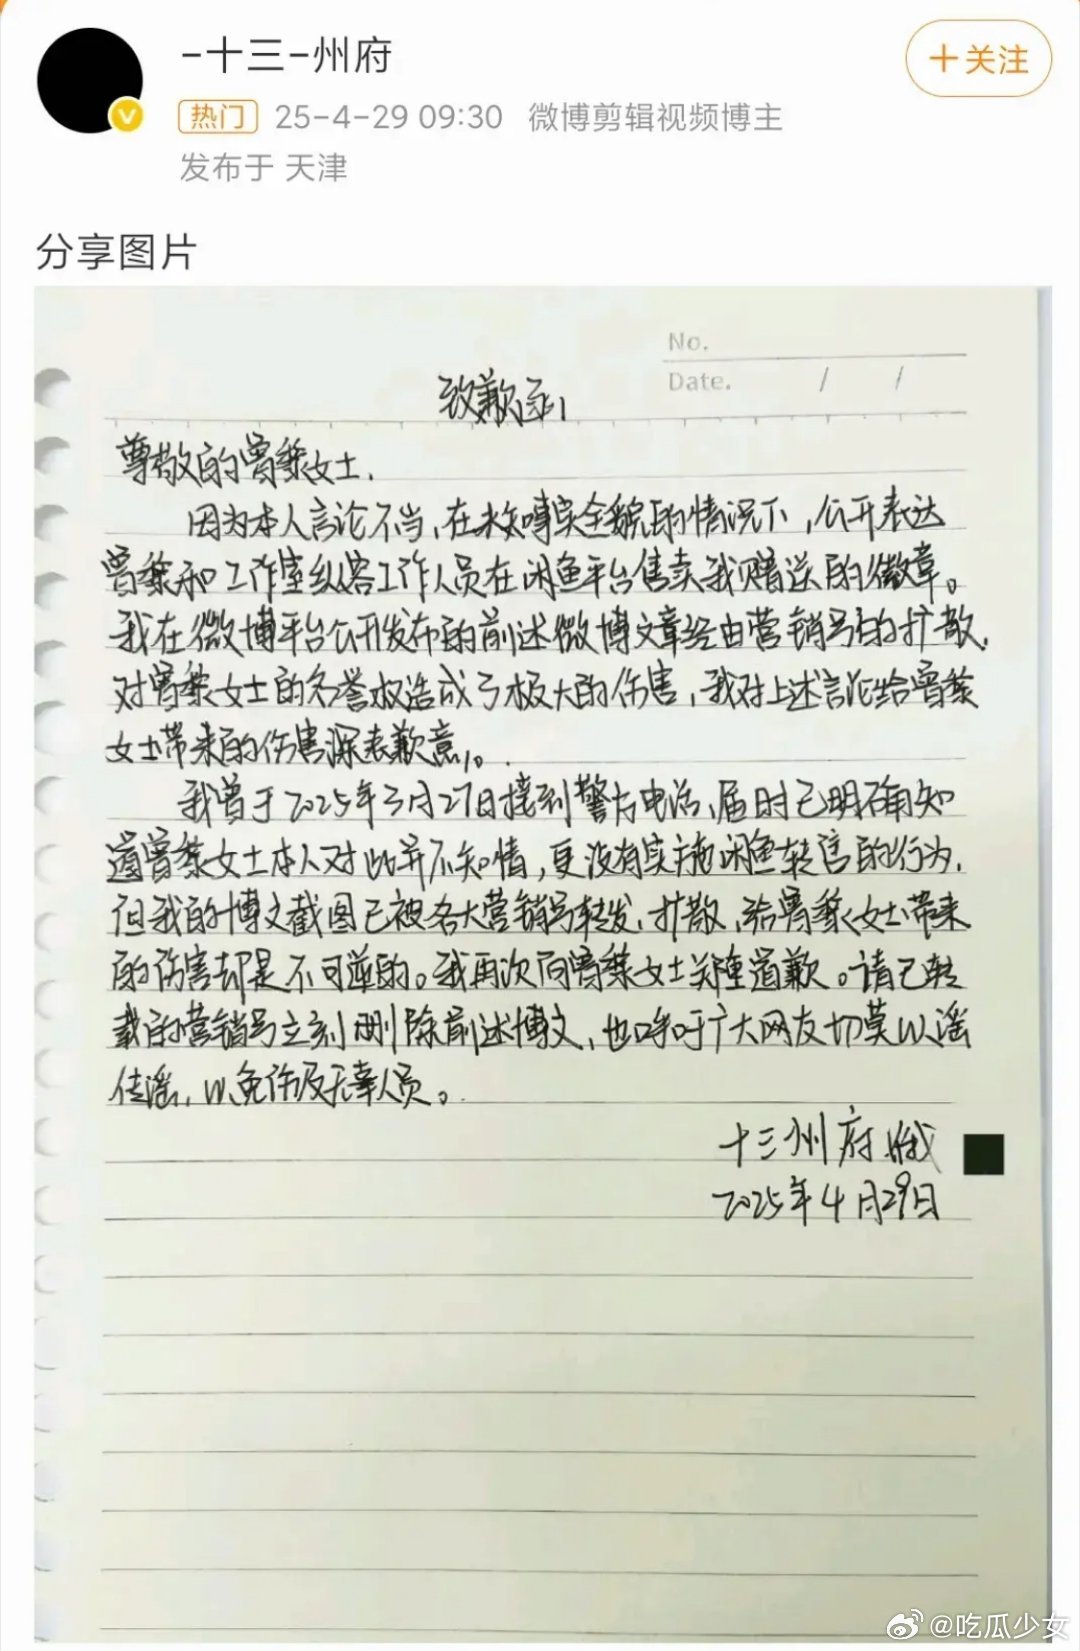 -十三-州府
+关注
热门 25-4-29 09:30 微博剪辑视频博主
发布于 天津
分享图片
No.
Date. / /
致歉函
尊敬的曾黎女士.
因为本人言论不当,在未知事实全貌的情况下,公开表达
曾黎和工作室纵容工作人员在闲鱼平台售卖我赠送的徽章。
我在微博平台公开发布的前述微博文章经由营销号的扩散,
对曾黎女士的名誉权造成了极大的伤害,我对上述言论给曾黎
女士带来的伤害深表歉意。
我曾于2025年3月27日接到警方电话,届时已明确知
道曾黎女士本人对此并不知情,更没有实施闲鱼转售的行为,
但我的博文截图已被各大营销号转发,扩散,给曾黎女士带来
的伤害却是不可逆的。我再次向曾黎女士郑重道歉。请已转
载的营销号立刻删除前述博文,也呼吁广大网友切莫以谣
传谣,以免伤及无辜人员。
十三州府
2025年4月29日
@吃瓜少女